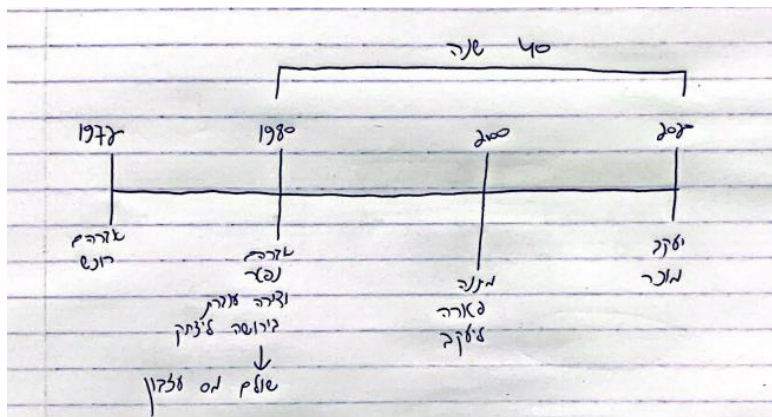 40 שנה
1972 1980 2000 2020
אברהם
רוכש
אברהם
נפטר
ודירה עוברת
בירושה ליצחק
↓
שולם מס עזבון
מתנה
פטורה
ליעקב
יעקב
מוכר